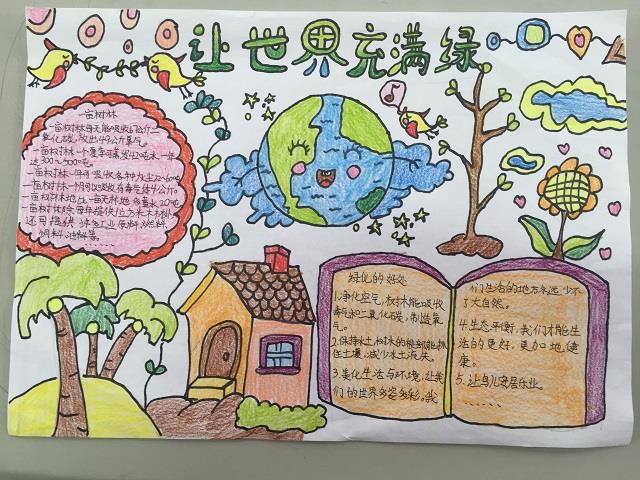 让世界充满绿
一亩树林
一亩树林每天能吸收67公斤二
氧化碳,放出49公斤氧气。
一亩树林一个夏季可蒸发42吨水,一年
达300~500吨。
一亩树林一年可吸收各种灰尘22~60吨
一亩树林一个月可以吸收有毒气体4公斤。
一亩树林地比一亩无林地多蓄水20吨
还可提供许多工业原料、燃料、
饲料、油料等。
绿化的好处
1.净化空气,树木能吸收
毒气和二氧化碳,制造氧
气。
2.保持水土,树木的根部能抓
住土壤,减少水土流失。
3.美化生活与环境,让我
们的世界多姿多彩。我
们生活的地方永远少不
了大自然。
4.生态平衡,我们才能生
活的更好,更加地健
康。
5.让鸟儿安居乐业。
......